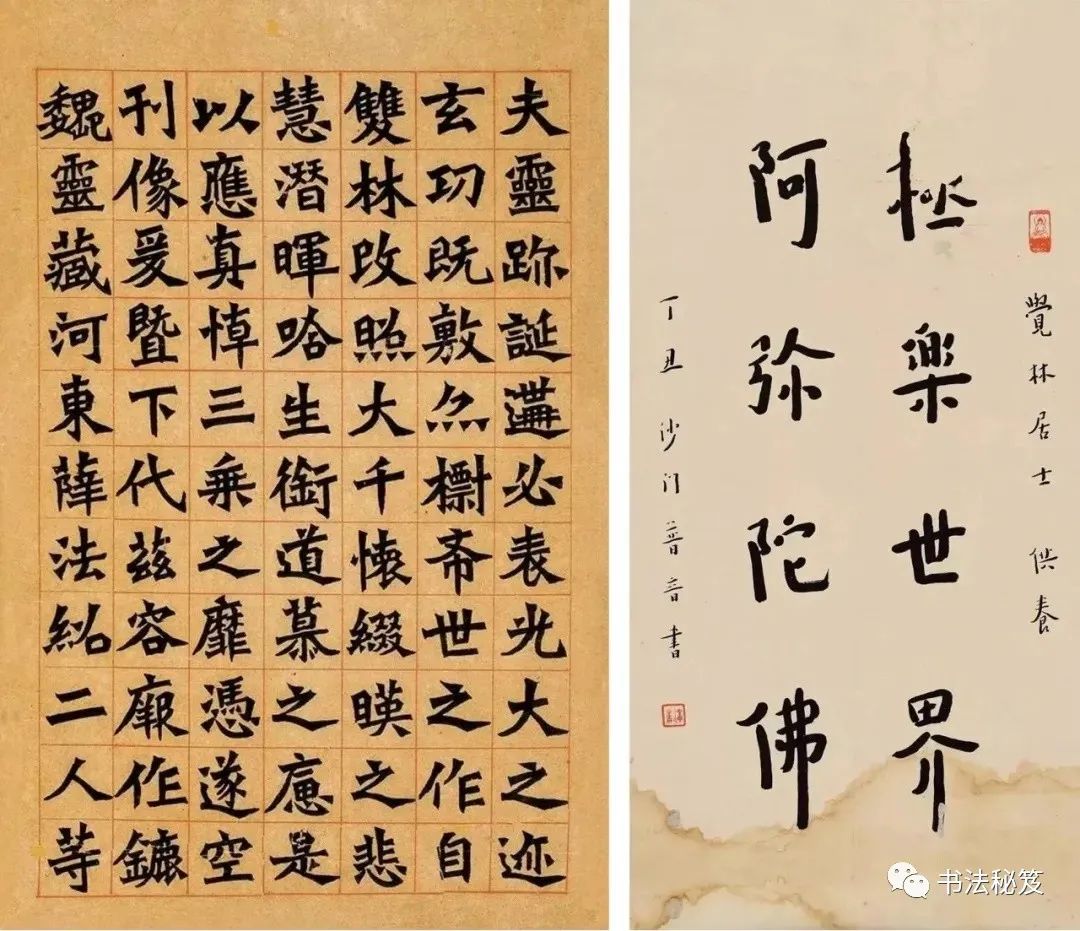 夫靈跡誕遘必表光大之迹
玄功既敷亦檦希世之作自
雙林改照大千懷綴暎之悲
慧潜暉哈生銜道慕之是
以應真悼三乗之靡憑遂空
刊像爰暨下代兹容廐作鑣
魏靈藏河東薛法紹二人等
覺林居士 供養
極樂世界
阿弥陀佛
丁丑 沙门普音書
书法秘笈